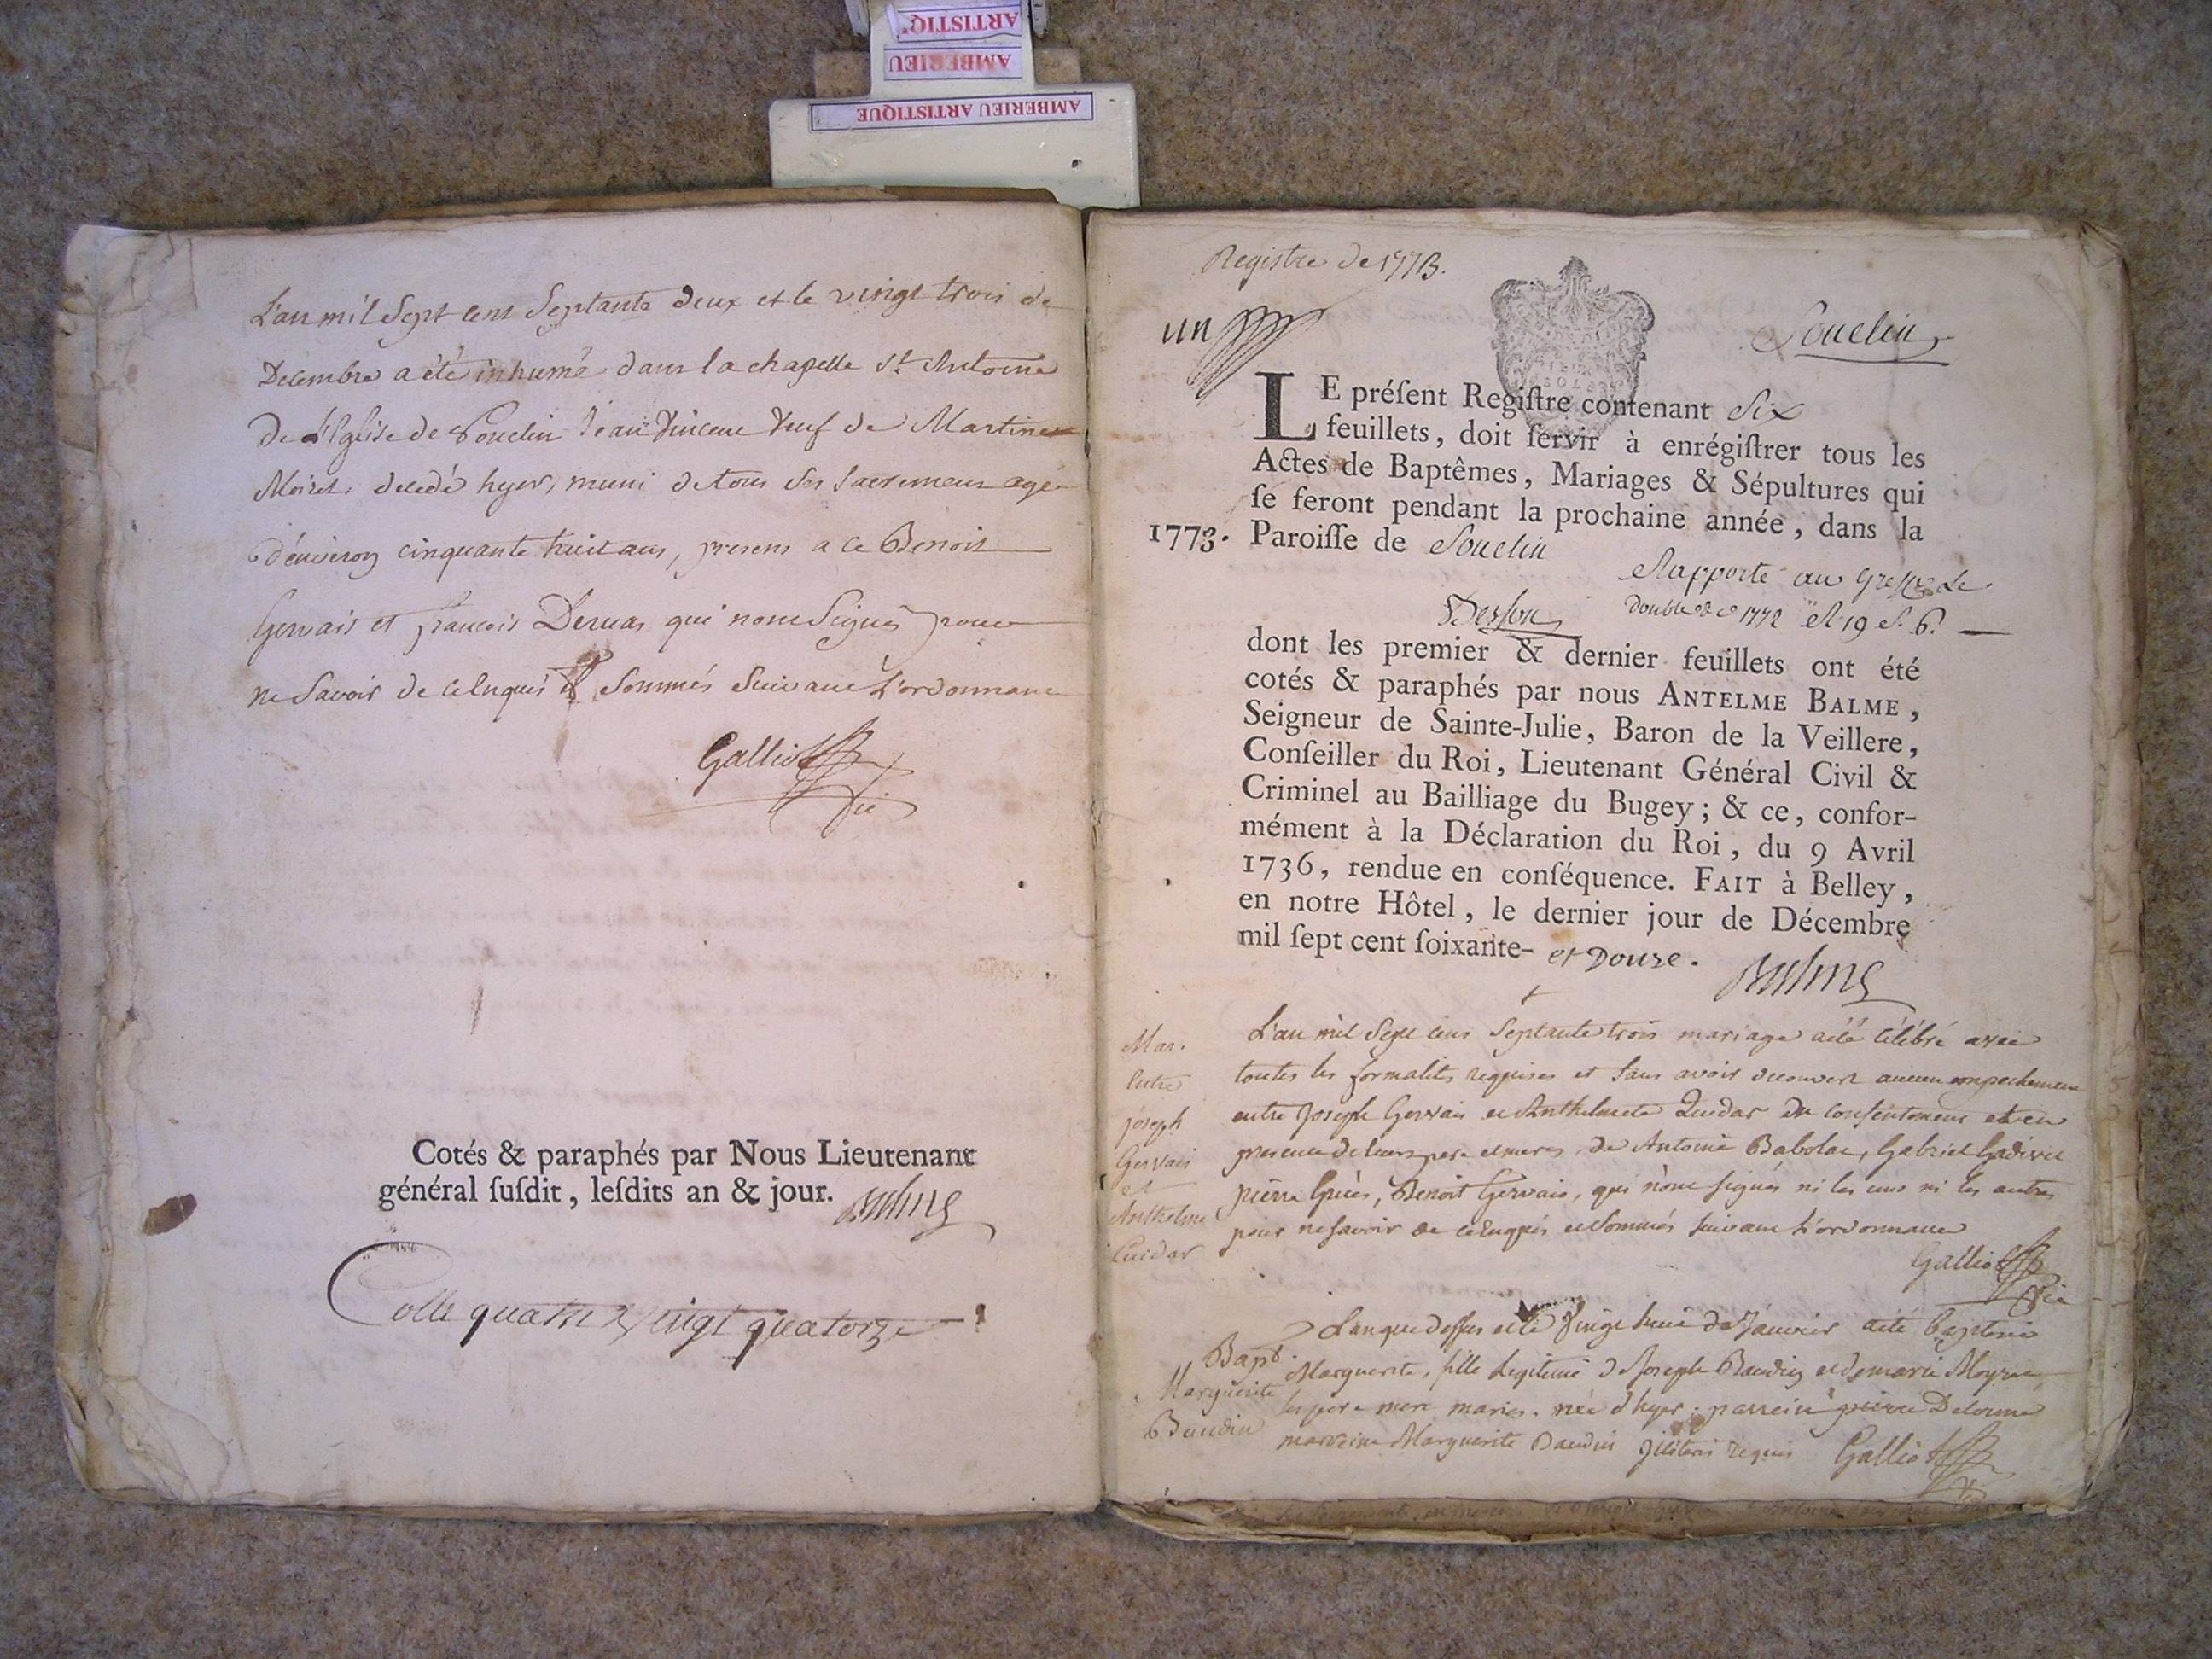 ARTISTIQ'
AMBERIEU
AMBERIEU ARTISTIQUE
L'an mil Sept cent Septante deux et le vingt trois de
Decembre a été inhumé dans la chapelle St. Antoine
De L'Eglise de Souclin Jean Vincent veuf de Martine
Moiret decedé hyer, muni de tous Ses Sacremens agé
d'environ cinquante huit ans, presens a ce Benoit
Gervais et françois Deruas qui n'ont Signés pour
ne Savoir de ce Enquis & Sommés Suivant L'ordonnance
Gallio
Cotés & paraphés par Nous Lieutenant
général ſuſdit, leſdits an & jour. Balme
Cotte quatre vingt quatorze
Registre de 1773.
un
Souclin
LE préſent Regiſtre contenant Six
feuillets, doit ſervir à enrégiſtrer tous les
Actes de Baptêmes, Mariages & Sépultures qui
ſe feront pendant la prochaine année, dans la
1773. Paroiſſe de Souclin
Rapporté au Greffe Le
double de 1772 19 S. 6.
dont les premier & dernier feuillets ont été
cotés & paraphés par nous ANTELME BALME,
Seigneur de Sainte-Julie, Baron de la Veillere,
Conſeiller du Roi, Lieutenant Général Civil &
Criminel au Bailliage du Bugey; & ce, confor-
mément à la Déclaration du Roi, du 9 Avril
1736, rendue en conſéquence. FAIT à Belley,
en notre Hôtel, le dernier jour de Décembre
mil ſept cent ſoixante- et Douze.
Balme
Mar.
Entre
joseph
Gervais
et
Anthelme
Cuidar
L'an mil Sept cens Septante trois mariage a été célébré avec
toutes les formalités requises et Sans avoir decouvert aucun empechement
entre Joseph Gervais et Anthelmete Quidar du consentement et en
presence de leurs pere et meres, de Antoine Babolat, Gabriel
pierre, Benoit Gervais, qui n'ont signés ni les uns ni les autres
pour ne savoir de ce Enquis et Sommés suivant L'ordonnance
Gallio
Bapt.
Marguerite
Baudin
L'an que dessus et le Vingt huit de Janvier a été baptisée
Marguerite, fille Legitime de Joseph Baudin et de marie Moyret
ses pere mere mariés. née d'hyer: parrein pierre Delorme
marreine Marguerite Baudin illiterés requis Gallio